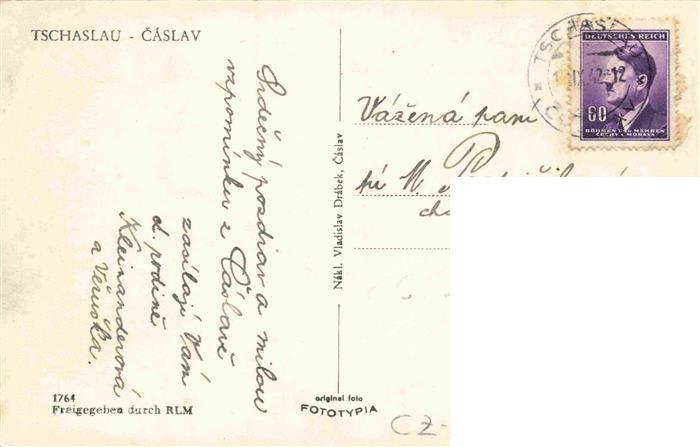 TSCHASLAU - ČÁSLAV
Srdečný pozdrav a milou
vzpomínku z Čáslavě
zasílají Vám
ct. rodině
Kleinanderová
a Věruška.
1764
Freigegeben durch RLM
Nákl. Vladislav Drábek, Čáslav
original foto
FOTOTYPIA
CZ-
TSCHASLAU
DEUTSCHES REICH
60
BÖHMEN UND MÄHREN
ČECHY A MORAVA
Vážená paní
pí M.